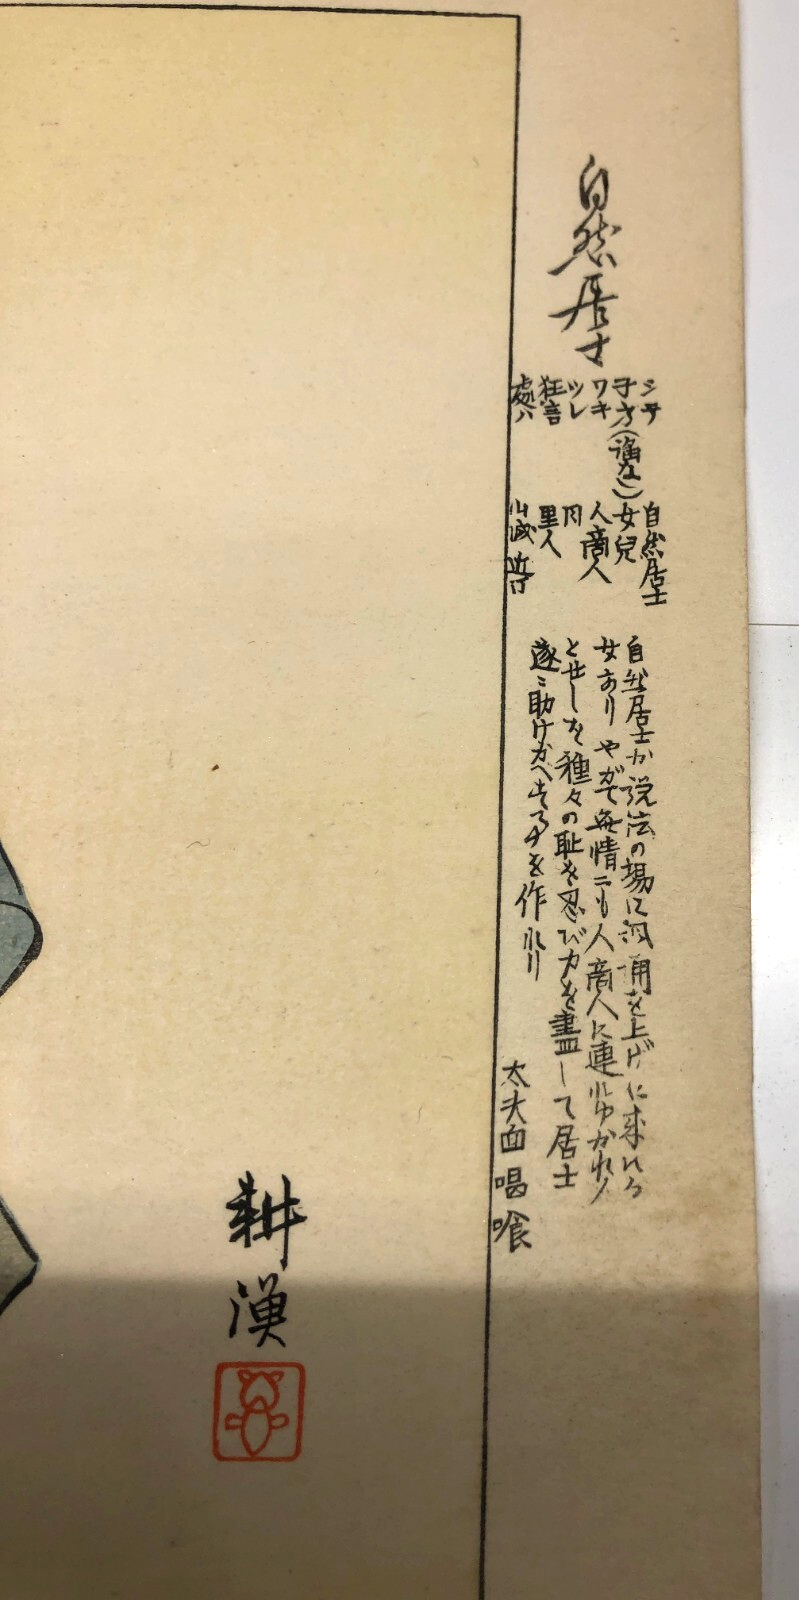 自然居士
シテ 自然居士
子方(謡なし) 女兒
ワキ 人商人
ツレ 同
狂言 里人
處ハ 山城 近江
自然居士が説法の場に諷誦を上げに来れる
女あり やがて無情ニも人商人に連れゆかれん
とせしを種々の恥を忍び力を盡して居士
遂ニ助けかへせる事を作れり
太夫面 喝喰
耕漁